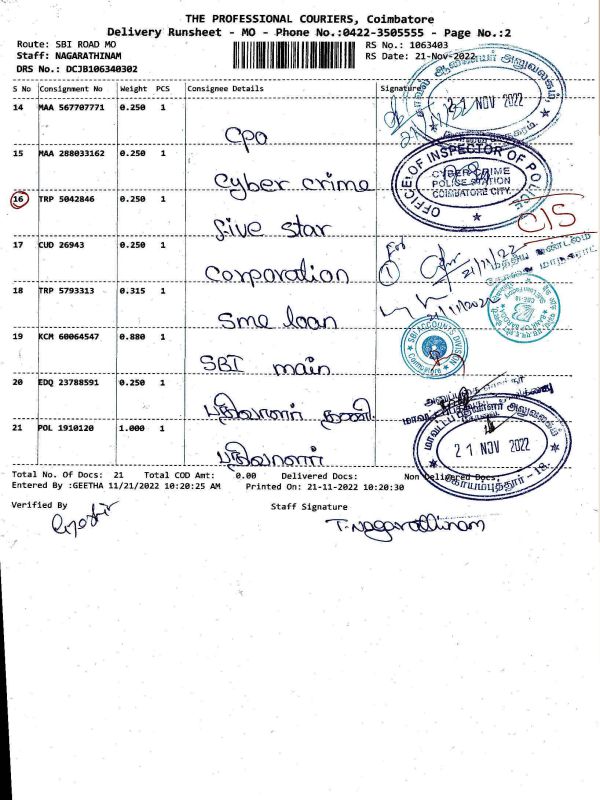 THE PROFESSIONAL COURIERS, Coimbatore
Delivery Runsheet - MO - Phone No.:0422-3505555 - Page No.:2
Route: SBI ROAD MO
RS No.: 1063403
Staff: NAGARATHINAM
RS Date: 21-Nov-2022
DRS No.: DCJB106340302
S No Consignment No Weight PCS Consignee Details Signature
14 MAA 567707771 0.250 1
CPO
21 NOV 2022
15 MAA 288033162 0.250 1
Cyber crime
OFFICE OF INSPECTOR OF POLICE
CYBER CRIME
POLICE STATION
COIMBATORE CITY.
16 TRP 5042846 0.250 1
five star
CIS
17 CUD 26943 0.250 1
Corporation
21/11/22
18 TRP 5793313 0.315 1
Sme loan
19 KCM 60064547 0.880 1
SBI main
SBI ACCOUNTS DIVISION
Coimbatore
20 EDQ 23788591 0.250 1
பதிவாளர் தணி
மாவட்டப் பதிவாளர் அலுவலகம்
21 NOV 2022
கோயம்புத்தூர் - 18.
21 POL 1910120 1.000 1
பதிவாளர்
Total No. Of Docs: 21 Total COD Amt: 0.00 Delivered Docs: Non Delivered Docs:
Entered By :GEETHA 11/21/2022 10:20:25 AM Printed On: 21-11-2022 10:20:30
Verified By
Staff Signature
T. Nagarathinam